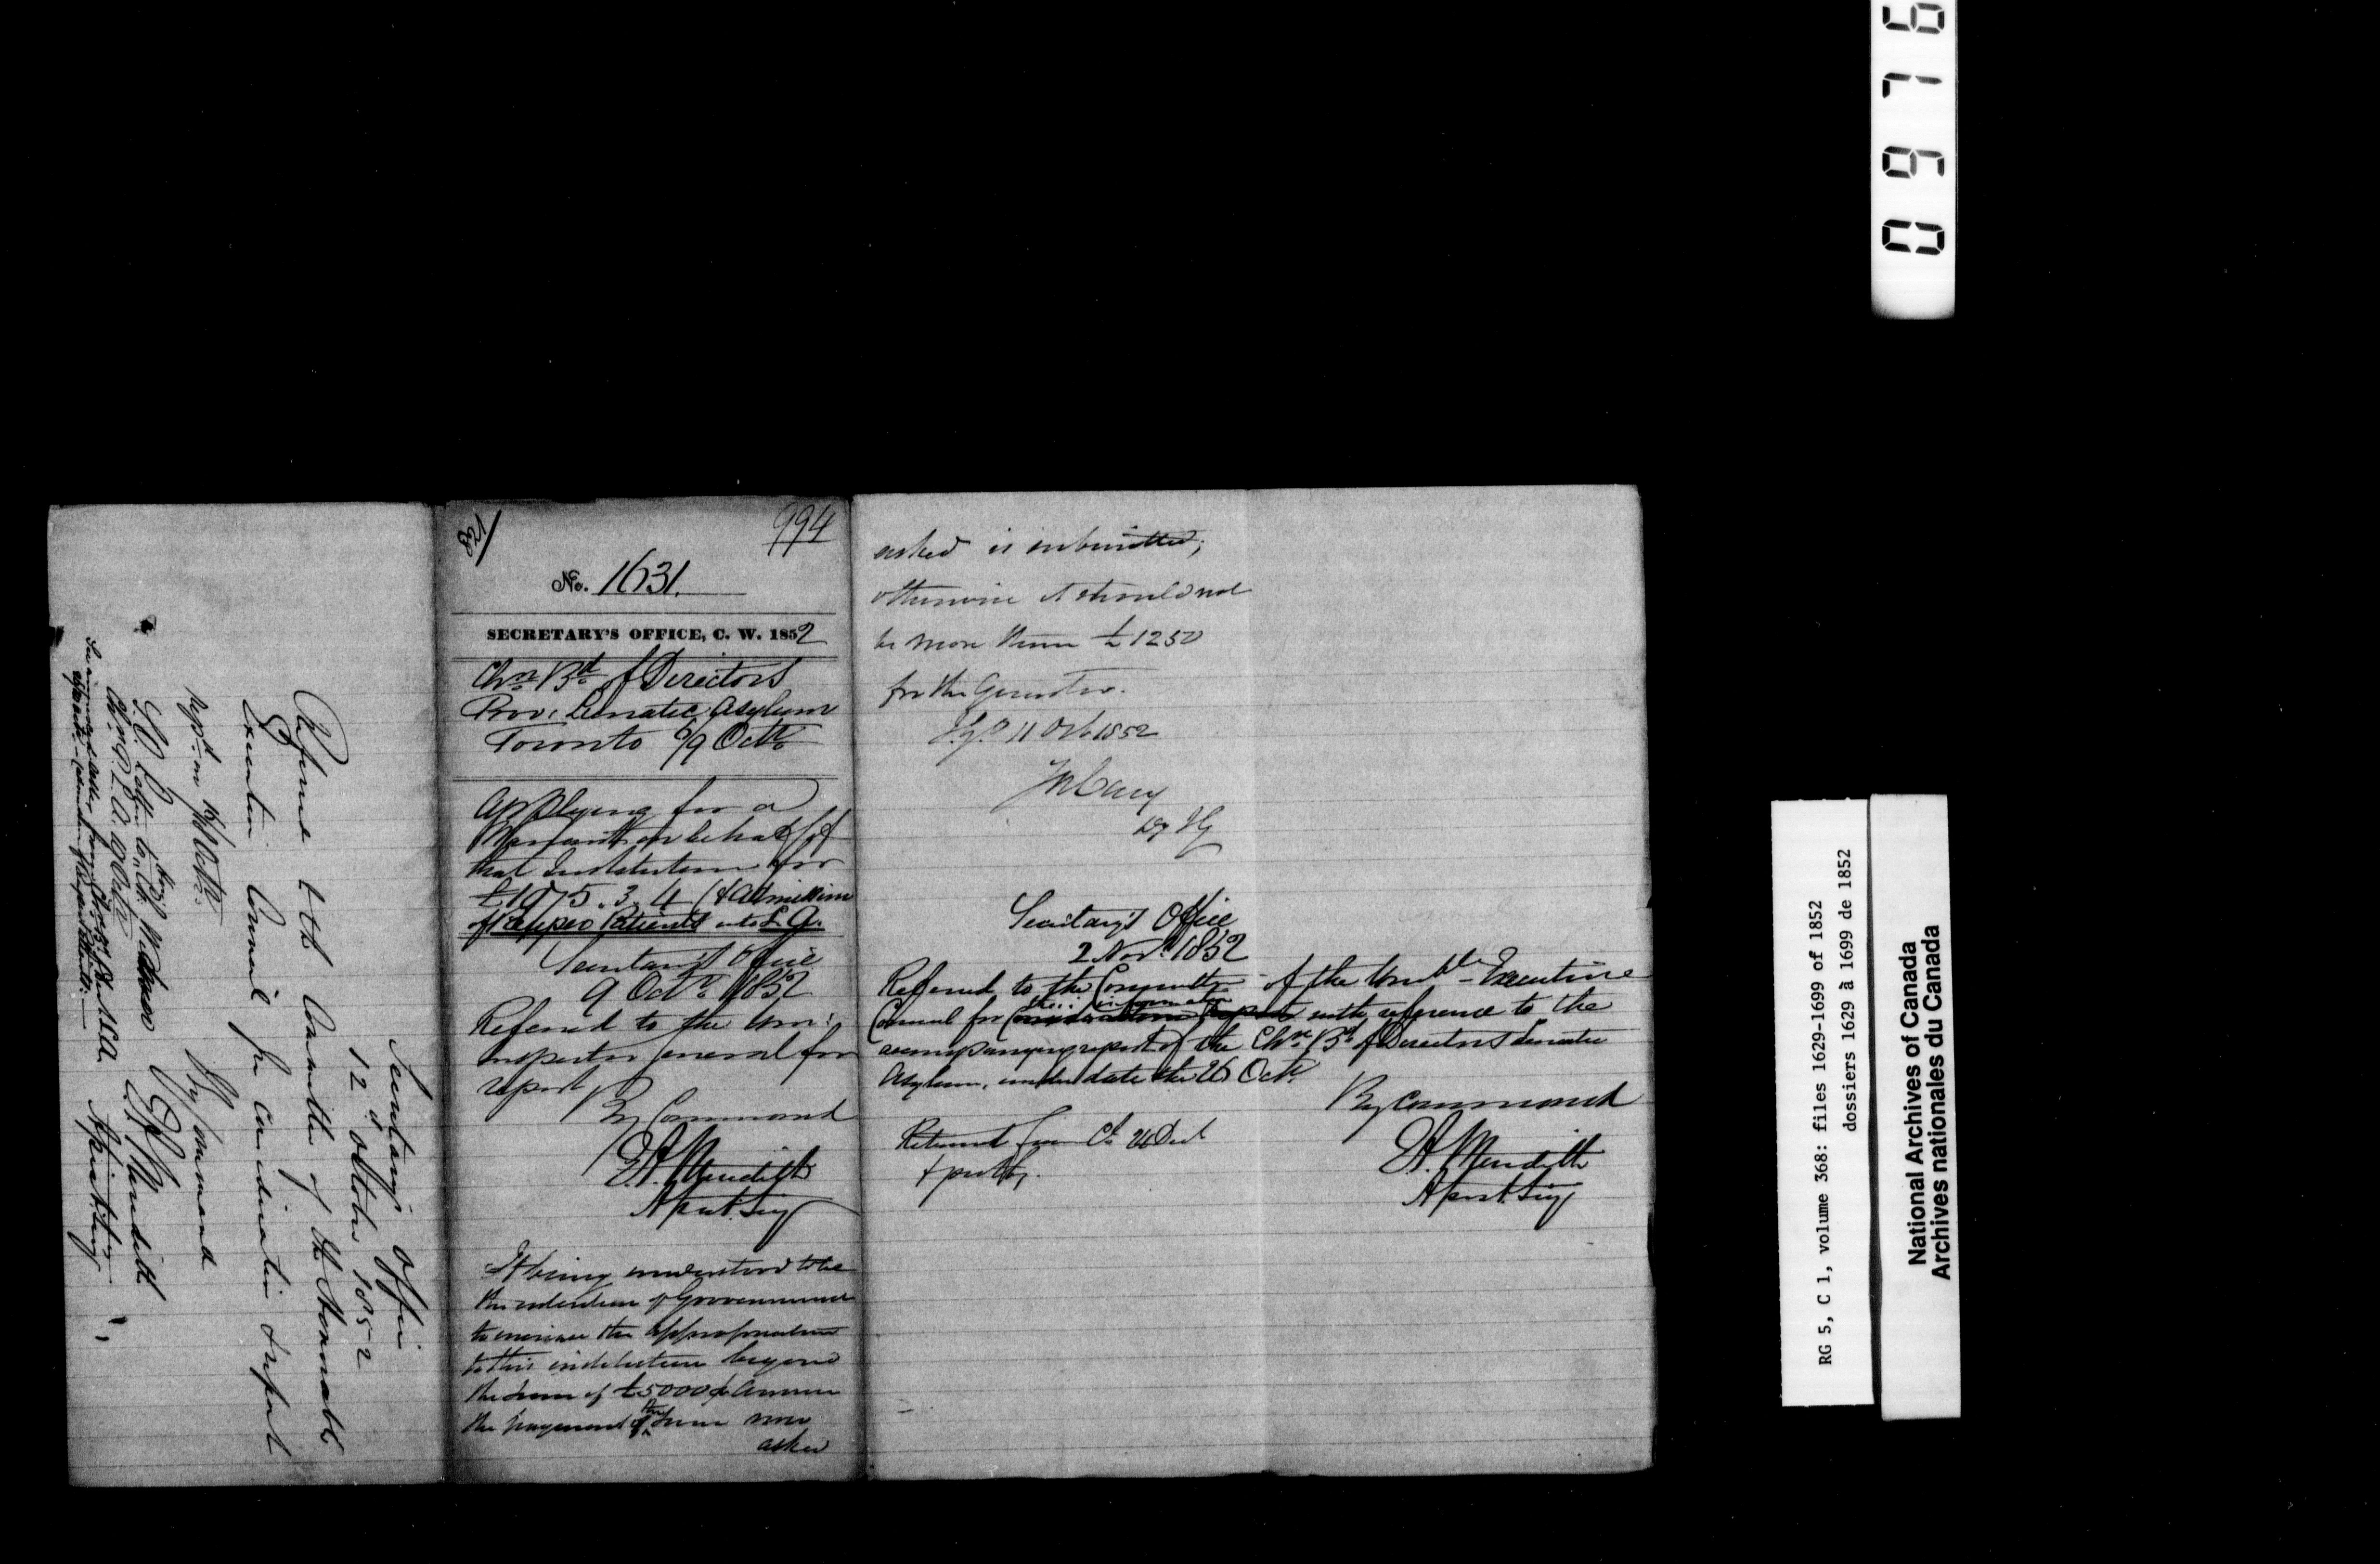 994
No. 1631.
SECRETARY'S OFFICE, C. W. 1852
Chn. Bd. of Directors
Prov. Lunatic Asylum
Toronto 6/9 Octr.
Applying for a
Warrant on behalf of
that Institution for
£1975.3.4 (& admission
of Pauper Patients into L. A.
Secretary's Office
9 Octr. 1852
Referred to the Hon:
Inspector General for
report
By Command
E. A. Meredith
Asst. Secy
It being understood to be
the intention of Government
to increase the appropriation
to this institution beyond
the sum of £5000 p Annum
the payment of the sum now
asked
asked is submitted,
otherwise it should not
be more than £1250
for the Quarter.
I.G.O. 11 Oct 1852
Jos Cary
Dy IG
Secretary's Office
2 Novr. 1852
Referred to the Committee of the Honble. Executive
Council for their information with reference to the
accompanying report of the Chn. Bd. of Directors Lunatic
Asylum, under date the 26 Octr.
By Command
E. A. Meredith
Asst. Secy
Returned from Cl. 24 Decr
& put by.
Secretary's Office
12 October 1852
Refered to the Committee of the Honorable
Executive Council for Consideration & report
By Command
E. A. Meredith
Asst. Secy
Repd. on 16 Octr.
L. A.
9 Octr
0976
RG 5, C 1, volume 368: files 1629-1699 of 1852
dossiers 1629 à 1699 de 1852
National Archives of Canada
Archives nationales du Canada